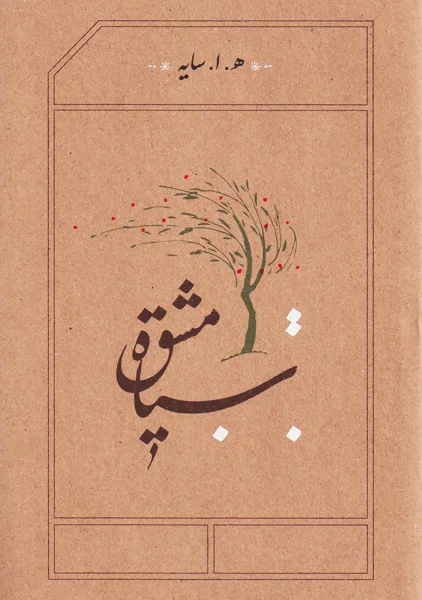 ه‍. ا. سایه
سیاه مشق